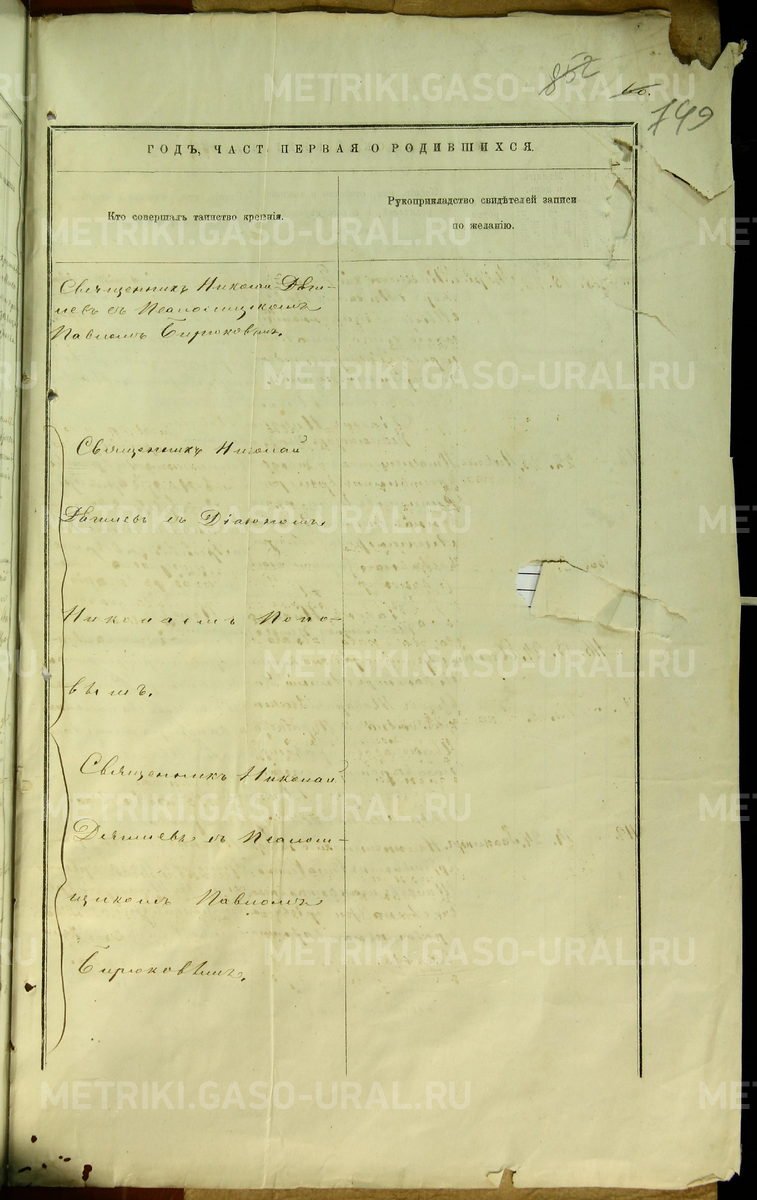 852
149
ГОДЪ, ЧАСТ. ПЕРВАЯ О РОДИВШИХСЯ.
Кто совершалъ таинство крещенія.
Рукоприкладство свидѣтелей записи
по желанію.
Священникъ Николай
съ Псаломщикомъ
Павломъ Бирюковымъ.
Священникъ Николай
съ Діакономъ
Николаемъ Попо-
вымъ.
Священникъ Николай
съ Псалом-
щикомъ Павломъ
Бирюковымъ.
METRIKI.GASO-URAL.RU